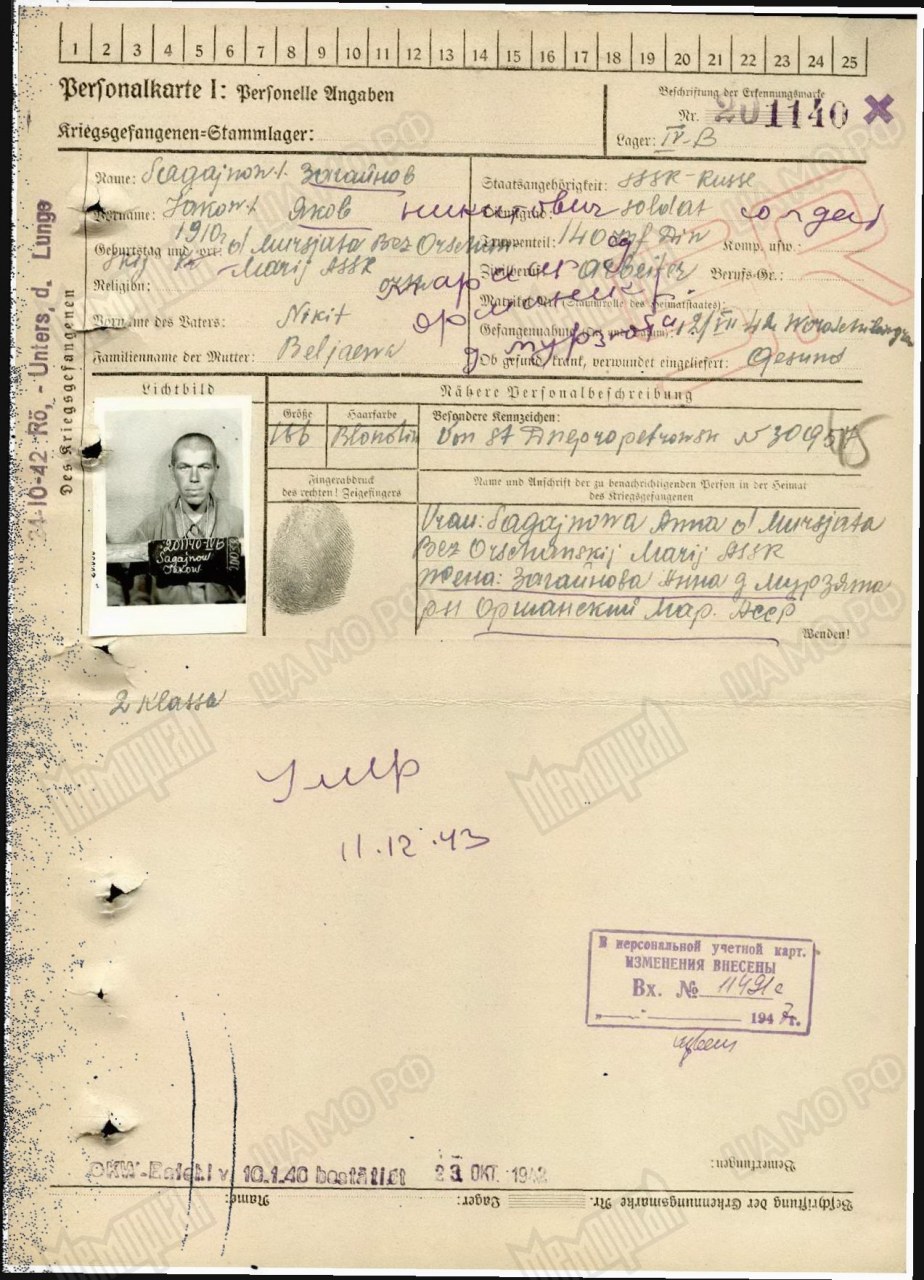 1 2 3 4 5 6 7 8 9 10 11 12 13 14 15 16 17 18 19 20 21 22 23 24 25
Personalkarte I: Personelle Angaben
Kriegsgefangenen=Stammlager:
Beschriftung der Erkennungsmarke
Nr. 201140
Lager: IV-B
Name: Sagajnow Загайнов
Vorname: Jakow Яков Никитович
Geburtstag und -ort: 1910 d Mursjata Bez Orschan
Marij ASSR
Religion:
Vorname des Vaters: Nikit
Familienname der Mutter: Beljaewa
Staatsangehörigkeit: SSSR-Russe
Dienstgrad: Soldat солдат
Truppenteil: 140 Inf Div Komp. usw.:
Zivilberuf: Arbeiter Berufs-Gr.:
Matrikel Nr. (Stammrolle des Heimatstaates):
Gefangennahme (Ort und Datum): 12/VII 42 Woroschilowgrad
Ob gesund, krank, verwundet eingeliefert: Gesund
Мар АССР
Оршанский р.
д Мурзята
Des Kriegsgefangenen
24-10-42 Rö,- Unters, d. Lunge
Lichtbild
Nähere Personalbeschreibung
Größe Haarfarbe Besondere Kennzeichen:
166 Blondin Von St Dnepropetrowsk N 30095
Fingerabdruck
des rechten! Zeigefingers
Name und Anschrift der zu benachrichtigenden Person in der Heimat
des Kriegsgefangenen
Frau: Sagajnowa Anna d Mursjata
Bez Orschanskij Marij ASSR
Жена: Загайнова Анна д Мурзята
рн Оршанский Мар. АССР
Wenden!
201140-IVB
Sagajnow
Jakow
2 Klassa
Умер
11.12.43
В персональной учетной карт.
ИЗМЕНЕНИЯ ВНЕСЕНЫ
Вх. № 11491с
1947г.
OKW-Befehl v. 10.1.40 bestätigt 23 OKT. 1942
Bemerkungen:
Beschriftung der Erkennungsmarke Nr. Lager: Name:
Мемориал
ЦА МО РФ